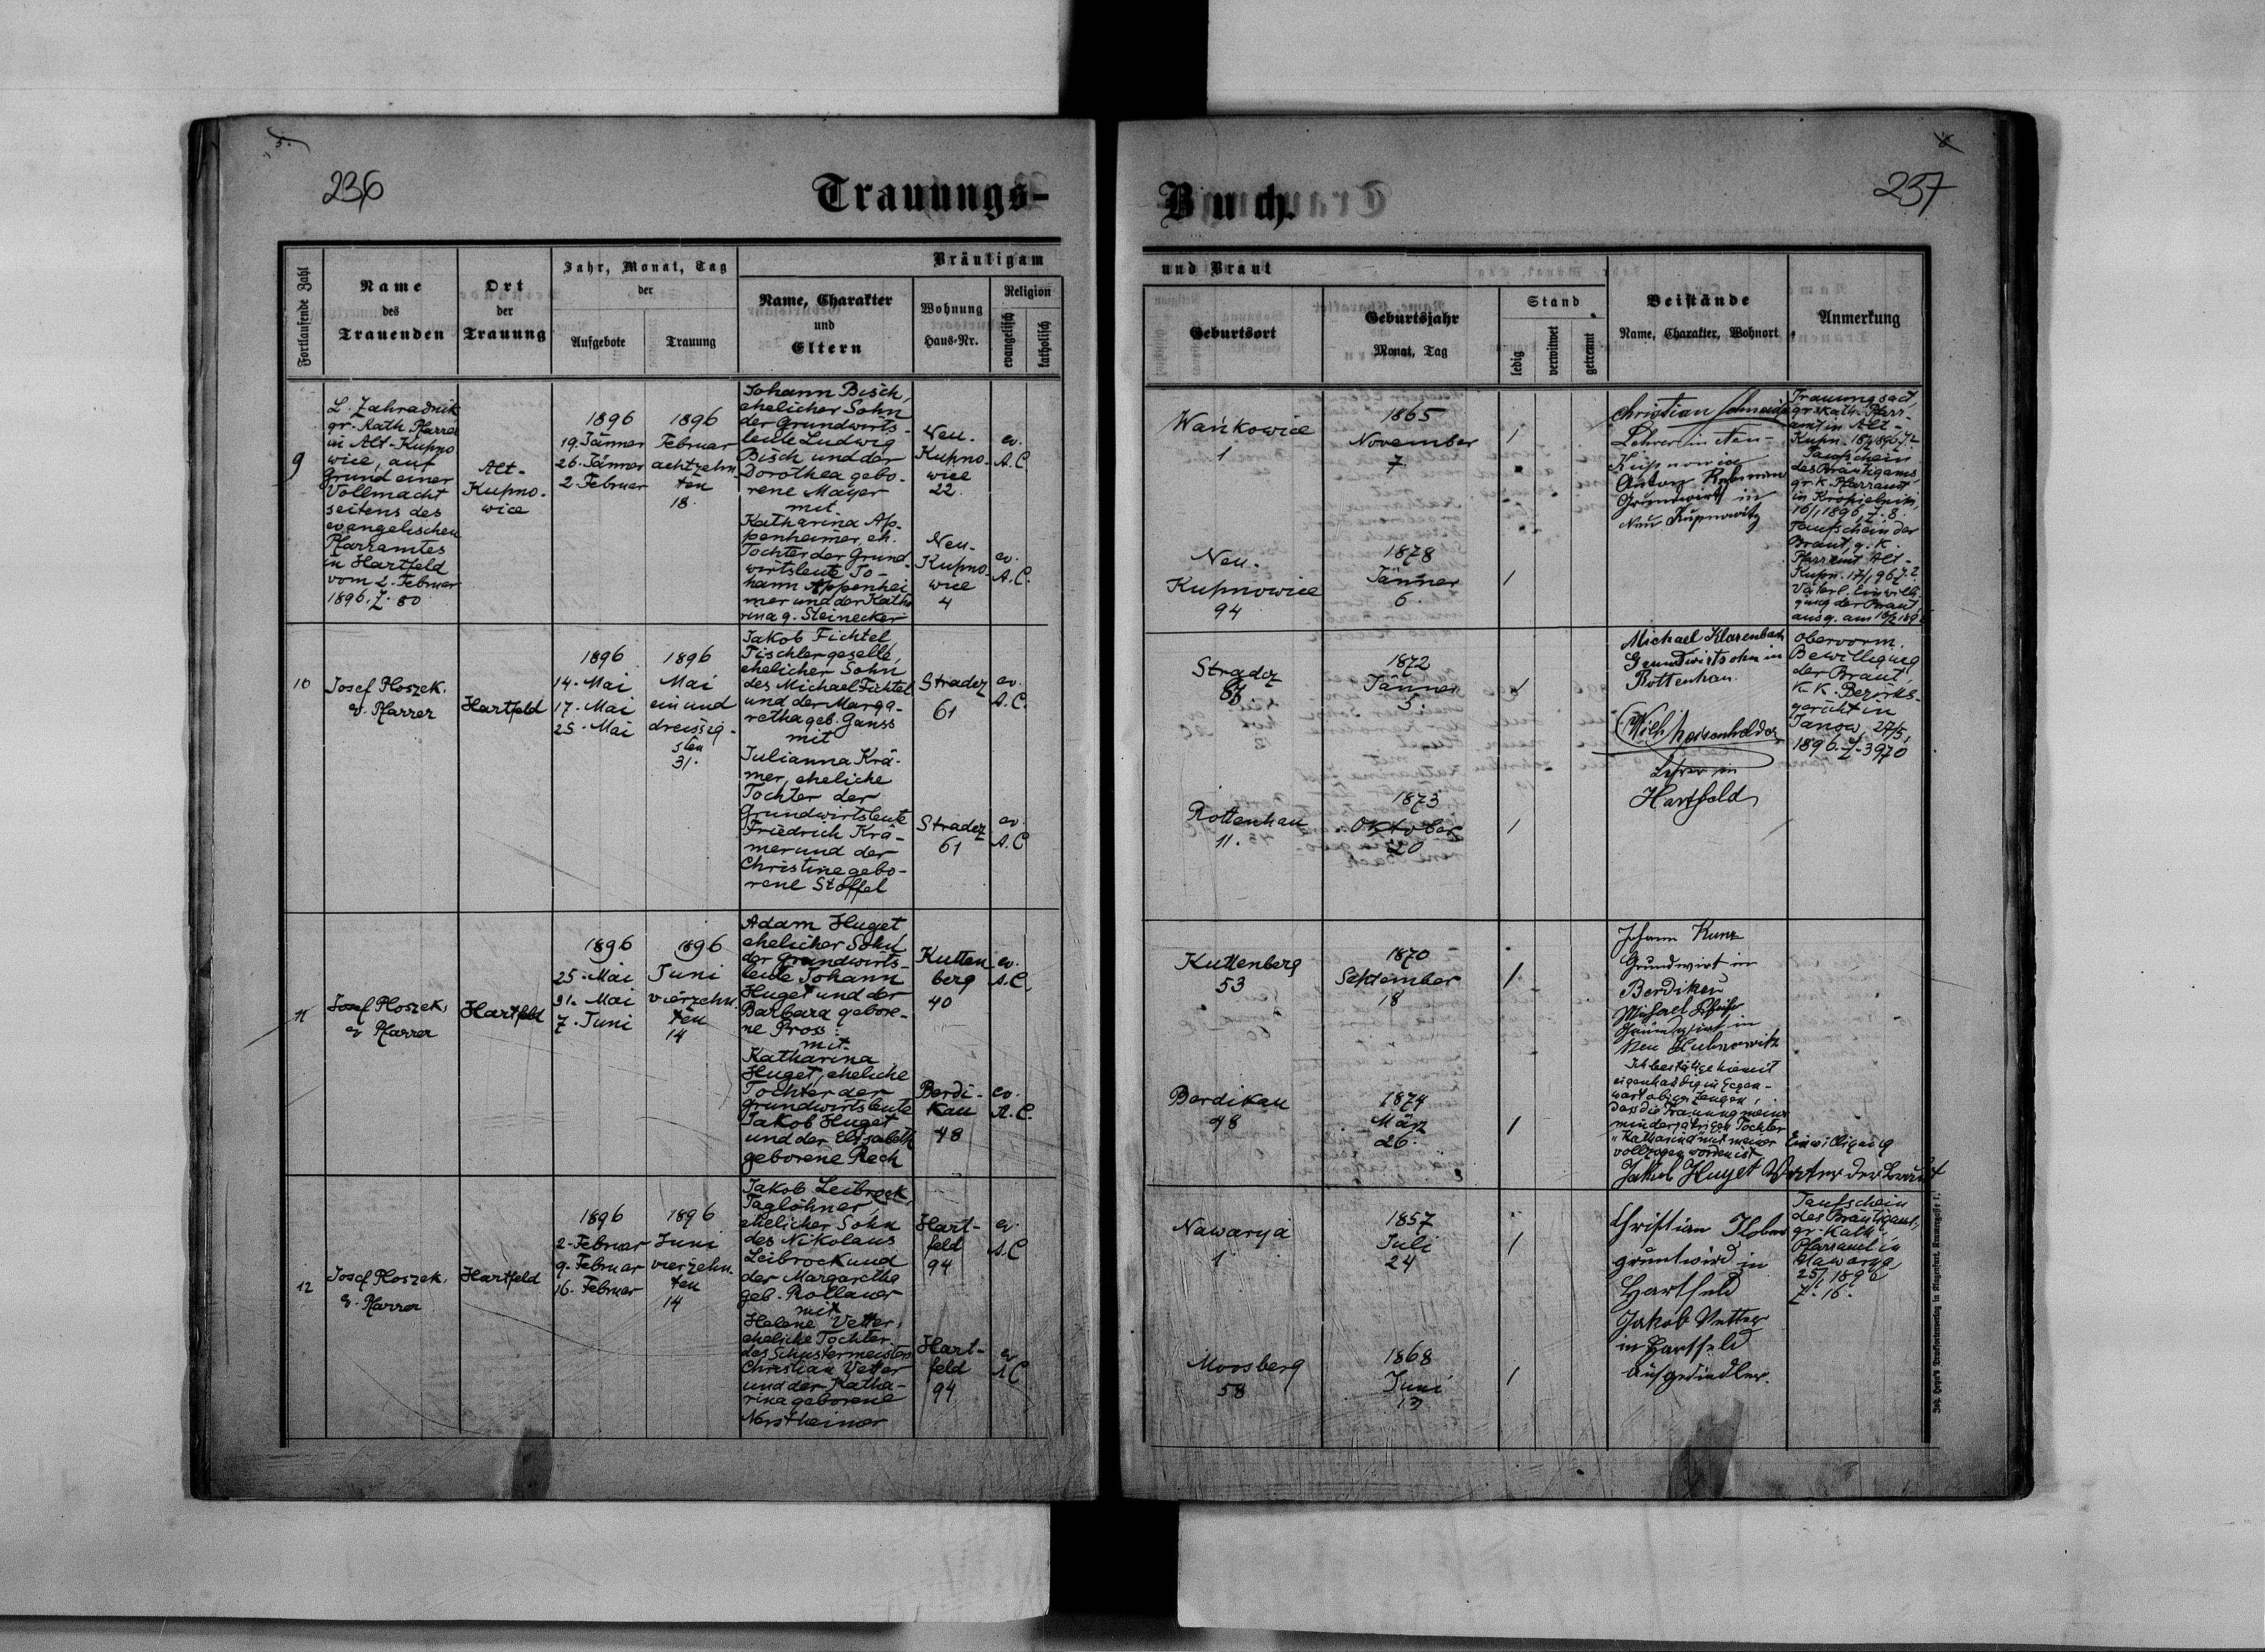 236
Trauungs-
Fortlaufende Zahl
Name
des
Trauenden
Ort
der
Trauung
Jahr, Monat, Tag
der
Aufgebote
Trauung
Bräutigam
Name, Charakter
und
Eltern
Wohnung
Haus-Nr.
Religion
evangelisch
katholisch
9
L. Zahradnik
gr. Kath. Pfarrer
in Alt-Kupno
wice, auf
Grund einer
Vollmacht
seitens des
evangelischen
Pfarramtes
in Hartfeld
vom 2. Februar
1896. Z. 80
Alt-
Kupno-
wice
1896
19. Jänner
26. Jänner
2. Februar
1896
Februar
achtzehn
ten
18.
Johann Bisch,
ehelicher Sohn
der Grundwirts-
leute Ludwig
Bisch und der
Dorothea gebo-
rene Mayer
mit
Katharina Ap-
penheimer, eh.
Tochter der Grund-
wirtsleute Jo-
hann Appenhei
mer und der Katha
rina g. Steinecker
Neu-
Kupno-
wice
22.
Neu-
Kupno-
wice
4
ev.
A.C.
ev.
A.C.
10
Josef Ploszek,
ev. Pfarrer
Hartfeld
1896
14. Mai
17. Mai
25. Mai
1896
Mai
ein und
dreissig-
sten
31.
Jakob Fichtel,
Tischlergeselle,
ehelicher Sohn
des Michael Fichtel
und der Marga-
retha geb. Ganss
mit
Julianna Krä-
mer, eheliche
Tochter der
Grundwirtsleute
Friedrich Krä-
mer und der
Christine gebo-
rene Stoffel
Stradcz
61
Stradcz
61
ev.
A.C.
ev.
A.C.
11
Josef Ploszek,
ev Pfarrer
Hartfeld
1896
25. Mai
31. Mai
7. Juni
1896
Juni
vierzehn
ten
14
Adam Huget,
ehelicher Sohn
der Grundwirts-
leute Johann
Huget und der
Barbara gebore-
ne Pross
mit
Katharina
Huget, eheliche
Tochter der
Grundwirtsleute
Jakob Huget
und der Elisabeth
geborene Rech
Kutten
berg
40
Berdi-
kau
48
ev.
A.C.
ev.
A.C.
12
Josef Ploszek,
ev. Pfarrer
Hartfeld
1896
2. Februar
9. Februar
16. Februar
1896
Juni
vierzehn-
ten
14
Jakob Leibrock,
Taglöhner,
ehelicher Sohn
des Nikolaus
Leibrock und
der Margaretha
geb. Rollauer
mit
Helene Vetter,
eheliche Tochter
des Schustermeisters
Christian Vetter
und der Katha-
rina geborene
Nerstheimer
Hart-
feld
94
Hart-
feld
94
ev.
A.C
ev
A.C
237
Buch.
und Braut
Geburtsort
Geburtsjahr
Monat, Tag
Stand
ledig
verwitwet
getrennt
Beistände
Name, Charakter, Wohnort
Anmerkung
Wańkowice
1
1865
November
7.
Neu-
Kupnowice
94
1878
Jänner
6.
Christian Schneider
Lehrer in Neu-
Kupnowice
Anton
Grundwirt in
Neu Kupnowitz
Trauungsact,
gr. kath. Pfarr-
amt in Alt-
Kupn.
Taufschein
des Bräutigams
gr. k. Pfarramt
in Kropielniki,
16/1 1896, Z. 8.
Taufschein der
Braut, g. K.
Pfarramt Alt-
Kupn. 17/1 96 Z. 2
Väterl. Einwilli-
gung der Braut,
ausg. am
Stradcz
1872
Jänner
5.
Rottenhan
11.
1873
Oktober
20
Michael Klarenbach
Grundwirtsohn in
Rottenhan.
Wilh
Lehrer in
Hartfeld
Obervorm.
Bewilligung
der Braut,
K. K. Bezirks-
gericht in
Janow, 27/5,
1896. Z. 3970
Kuttenberg
53
1870
September
18
Berdikau
48
1874
März
26.
Johann Kunz
Grundwirt in
Berdikau
Michael
Grundwirt in
Neu Kubnowitz
Ich bestätige hiemit
eigenhändig in Gegen-
wart obiger Zeugen,
dass die Trauung meiner
minderjährigen Tochter
"Katharina" mit meiner Einwilligung
vollzogen worden ist.
Jakob Huget Vater der Braut
Nawarya
1
1857
Juli
24
Moosberg
58
1868
Juni
13
Christian
gruntwird in
Hartfeld
Jakob Vetter
in Hartfeld
Ausgediedler.
Taufschein
des Bräutigams,
gr. Kath.
Pfarramt in
Nawarya,
25/1 1896
Z. 16.